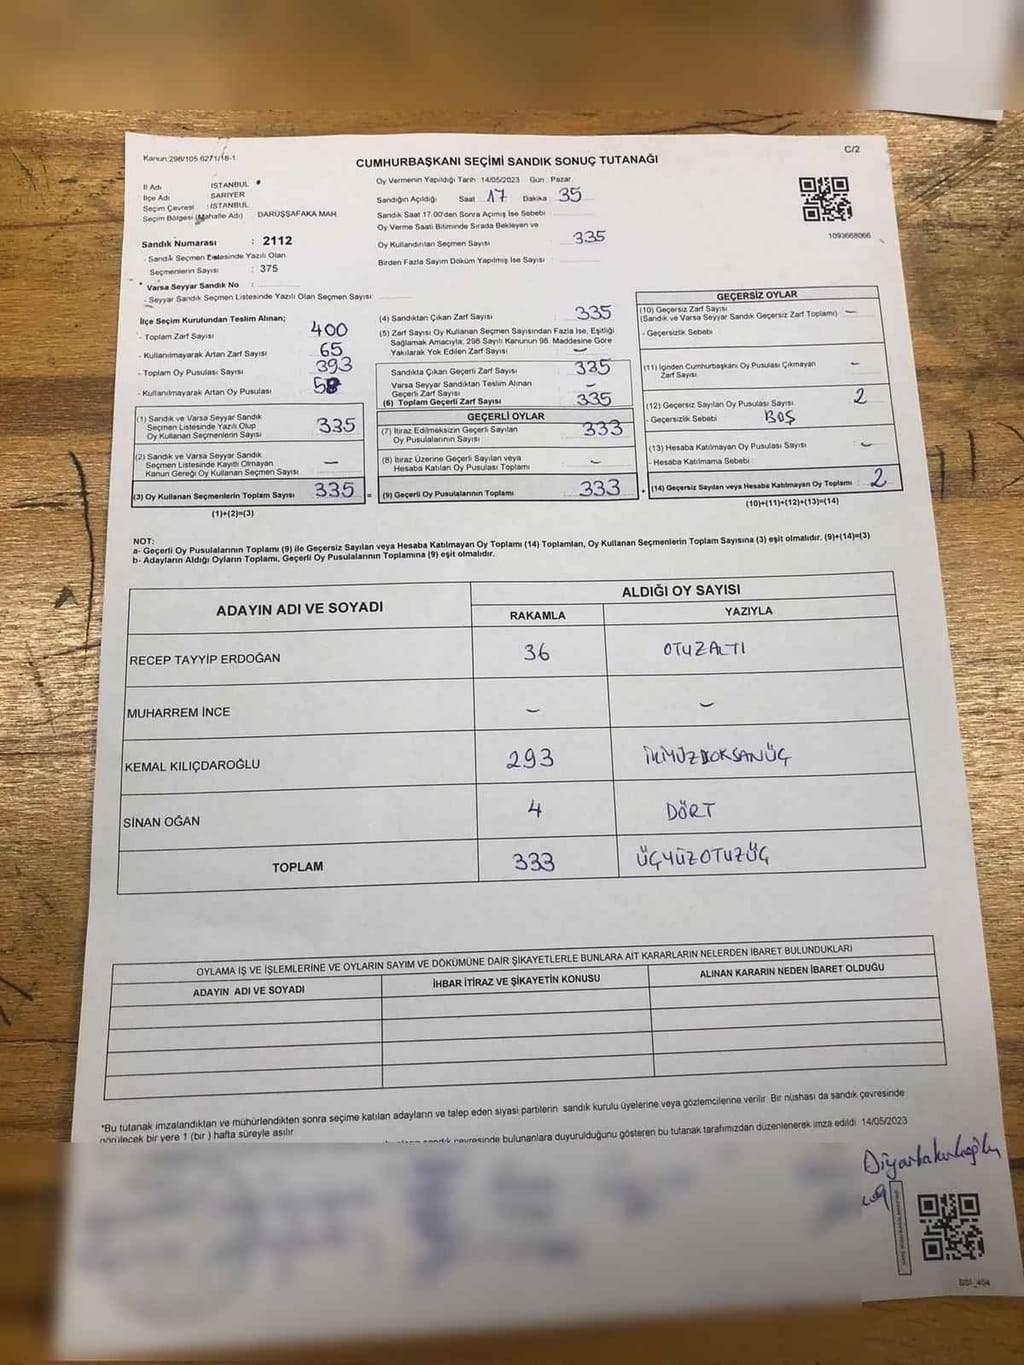 Kanun:298/105.6271/18-1
C/2
CUMHURBAŞKANI SEÇİMİ SANDIK SONUÇ TUTANAĞI
İl Adı İSTANBUL
İlçe Adı SARIYER
Seçim Çevresi : İSTANBUL
Seçim Bölgesi (Mahalle Adı) DARÜŞŞAFAKA MAH
Sandık Numarası : 2112
- Sandık Seçmen Listesinde Yazılı Olan
Seçmenlerin Sayısı : 375
Varsa Seyyar Sandık No :
- Seyyar Sandık Seçmen Listesinde Yazılı Olan Seçmen Sayısı:
Oy Vermenin Yapıldığı Tarih :14/05/2023 Gün : Pazar
Sandığın Açıldığı Saat 17 Dakika 35
Sandık Saat 17.00'den Sonra Açımış İse Sebebi
Oy Verme Saati Bitiminde Sırada Bekleyen ve
Oy Kullandırılan Seçmen Sayısı 335
Birden Fazla Sayım Döküm Yapılmış İse Sayısı
1093668066
İlçe Seçim Kurulundan Teslim Alınan;
- Toplam Zarf Sayısı 400
- Kullanılmayarak Artan Zarf Sayısı 65
- Toplam Oy Pusulası Sayısı 393
- Kullanılmayarak Artan Oy Pusulası 58
(1) Sandık ve Varsa Seyyar Sandık
Seçmen Listesinde Yazılı Olup
Oy Kullanan Seçmenlerin Sayısı 335
(2) Sandık ve Varsa Seyyar Sandık
Seçmen Listesinde Kayıtlı Olmayan
Kanun Gereği Oy Kullanan Seçmen Sayısı –
(3) Oy Kullanan Seçmenlerin Toplam Sayısı 335 =
(1)+(2)=(3)
(4) Sandıktan Çıkan Zarf Sayısı 335
(5) Zarf Sayısı Oy Kullanan Seçmen Sayısından Fazla İse, Eşitliği
Sağlamak Amacıyla, 298 Sayılı Kanunun 98. Maddesine Göre
Yakılarak Yok Edilen Zarf Sayısı –
Sandıkta Çıkan Geçerli Zarf Sayısı 335
Varsa Seyyar Sandıktan Teslim Alınan
Geçerli Zarf Sayısı –
(6) Toplam Geçerli Zarf Sayısı 335
GEÇERLİ OYLAR
(7) İtiraz Edilmeksizin Geçerli Sayılan
Oy Pusulalarının Sayısı 333
(8) İtiraz Üzerine Geçerli Sayılan veya
Hesaba Katılan Oy Pusulası Toplamı –
(9) Geçerli Oy Pusulalarının Toplamı 333
GEÇERSİZ OYLAR
(10) Geçersiz Zarf Sayısı
(Sandık ve Varsa Seyyar Sandık Geçersiz Zarf Toplamı) –
- Geçersizlik Sebebi
(11) İçinden Cumhurbaşkanı Oy Pusulası Çıkmayan
Zarf Sayısı –
(12) Geçersiz Sayılan Oy Pusulası Sayısı 2
- Geçersizlik Sebebi BOŞ
(13) Hesaba Katılmayan Oy Pusulası Sayısı –
- Hesaba Katılmama Sebebi
(14) Geçersiz Sayılan veya Hesaba Katılmayan Oy Toplamı 2
(10)+(11)+(12)+(13)=(14)
NOT:
a- Geçerli Oy Pusulalarının Toplamı (9) ile Geçersiz Sayılan veya Hesaba Katılmayan Oy Toplamı (14) Toplamları, Oy Kullanan Seçmenlerin Toplam Sayısına (3) eşit olmalıdır. (9)+(14)=(3)
b- Adayların Aldığı Oyların Toplamı, Geçerli Oy Pusulalarının Toplamına (9) eşit olmalıdır.
ADAYIN ADI VE SOYADI
ALDIĞI OY SAYISI
RAKAMLA YAZIYLA
RECEP TAYYİP ERDOĞAN 36 OTUZALTI
MUHARREM İNCE – –
KEMAL KILIÇDAROĞLU 293 İKİYÜZDOKSANÜÇ
SİNAN OĞAN 4 DÖRT
TOPLAM 333 ÜÇYÜZOTUZÜÇ
OYLAMA İŞ VE İŞLEMLERİNE VE OYLARIN SAYIM VE DÖKÜMÜNE DAİR ŞİKAYETLERLE BUNLARA AİT KARARLARIN NELERDEN İBARET BULUNDUKLARI
ADAYIN ADI VE SOYADI İHBAR İTİRAZ VE ŞİKAYETİN KONUSU ALINAN KARARIN NEDEN İBARET OLDUĞU
*Bu tutanak imzalandıktan ve mühürlendikten sonra seçime katılan adayların ve talep eden siyasi partilerin sandık kurulu üyelerine veya gözlemcilerine verilir. Bir nüshası da sandık çevresinde
görülecek bir yere 1 (bir) hafta süreyle asılır.
sandık çevresinde bulunanlara duyurulduğunu gösteren bu tutanak tarafımızdan düzenlenerek imza edildi. 14/05/2023